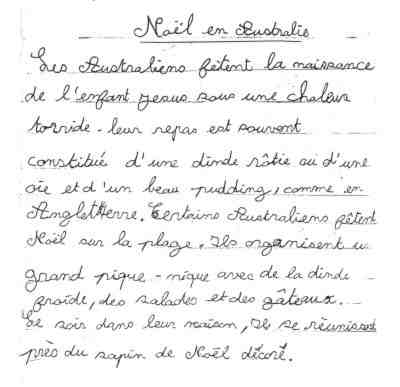 Noël en Australie
Les Australiens fêtent la naissance
de l'enfant Jesus sous une chaleur
torride. leur repas est souvent
constitué d'une dinde rôtie ou d'une
oie et d'un beau pudding, comme en
Angletterre. Certains Australiens fêtent
Noël sur la plage. Ils organisent u
grand pique-nique avec de la dinde
froide, des salades et des gâteaux.
Le soir dans leur maison, Ils se réunissent
près du sapin de Noël décoré.